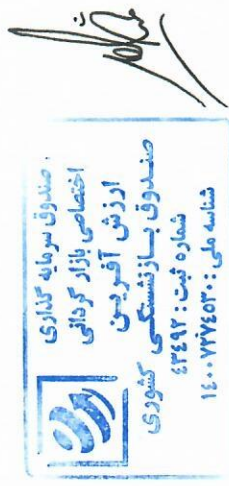 صندوق سرمایه گذاری
اختصاصی بازار گردانی
ارزش آفرین
صندوق بازنشستگی کشوری
شماره ثبت: ۴۳۴۹۲
شناسه ملی: ۱۴۰۰۷۲۷۴۵۳۰